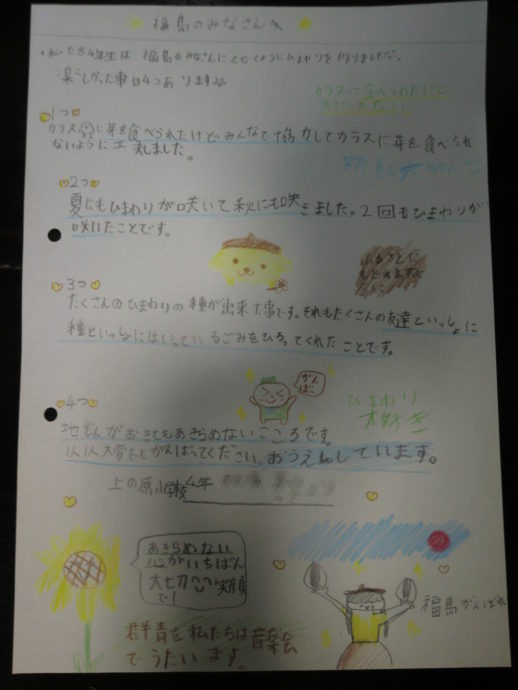 福島のみなさんへ
私たち4年生は 福島のみなさんにとどくようにひまわりを作りました。
楽しかった事は4つあります
カラスに食べられたけど
あきらめない
1つ
カラスに芽を食べられたけどみんなで協力してカラスに芽を食べられ
ないように工夫しました。
2つ
夏にもひまわりが咲いて秋にも咲きました。2回もひまわりが
咲いたことです。
3つ
たくさんのひまわりの種が出来た事です。それもたくさんの友達といっしょに
種といっしょにはいっているごみをひろってくれたことです。
がんば
4つ
ひまわり
大好き
地しんがおきてもあきらめないこころです。
大変でもがんばってください。おうえんしています。
上の原小学校4年
あきらめない
心がいちばん
大切 笑顔
で!
福島がんばれ
群青を私たちは音楽会
でうたいます。